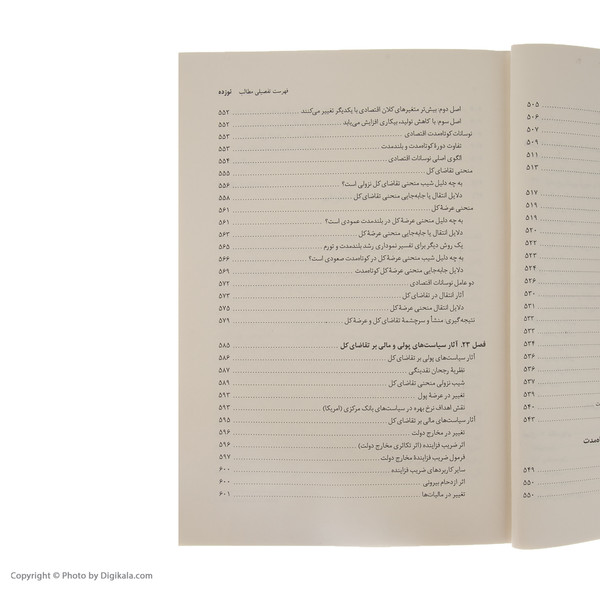 فهرست تفصیلی مطالب نوزده
اصل دوم: بیش‌تر متغیرهای کلان اقتصادی با یکدیگر تغییر می‌کنند ۵۵۲
اصل سوم: با کاهش تولید، بیکاری افزایش می‌یابد ۵۵۲
نوسانات کوتاه‌مدت اقتصادی ۵۵۳
تفاوت دورهٔ کوتاه‌مدت و بلندمدت ۵۵۳
الگوی اصلی نوسانات اقتصادی ۵۵۴
منحنی تقاضای کل ۵۵۵
به چه دلیل شیب منحنی تقاضای کل نزولی است؟ ۵۵۶
دلایل انتقال یا جابه‌جایی منحنی تقاضای کل ۵۵۸
منحنی عرضهٔ کل ۵۶۱
به چه دلیل منحنی عرضهٔ کل در بلندمدت عمودی است؟ ۵۶۱
دلایل انتقال یا جابه‌جایی منحنی عرضهٔ کل ۵۶۳
یک روش دیگر برای تفسیر نموداری رشد بلندمدت و تورم ۵۶۵
به چه دلیل شیب منحنی عرضهٔ کل در کوتاه‌مدت صعودی است؟ ۵۶۶
دلایل جابه‌جایی منحنی عرضهٔ کل کوتاه‌مدت ۵۶۹
دو عامل نوسانات اقتصادی ۵۷۲
آثار انتقال در تقاضای کل ۵۷۳
دلایل انتقال منحنی عرضهٔ کل ۵۷۵
نتیجه‌گیری: منشأ و سرچشمهٔ تقاضای کل و عرضهٔ کل ۵۷۹
فصل ۲۳. آثار سیاست‌های پولی و مالی بر تقاضای کل ۵۸۵
آثار سیاست‌های پولی بر تقاضای کل ۵۸۶
نظریهٔ رجحان نقدینگی ۵۸۷
شیب نزولی منحنی تقاضای کل ۵۸۹
تغییر در عرضهٔ پول ۵۹۳
نقش اهداف نرخ بهره در سیاست‌های بانک مرکزی (آمریکا) ۵۹۳
آثار سیاست‌های مالی بر تقاضای کل ۵۹۵
تغییر در مخارج دولت ۵۹۶
اثر ضریب فزاینده (اثر تکاثری مخارج دولت) ۵۹۶
فرمول ضریب فزایندهٔ مخارج دولت ۵۹۷
سایر کاربردهای ضریب فزاینده ۶۰۰
اثر ازدحام بیرونی ۶۰۰
تغییر در مالیات‌ها ۶۰۱
۵۰۵
۵۰۶
۵۰۷
۵۰۹
۵۱۱
۵۱۳
۵۱۷
۵۱۹
۵۱۹
۵۲۰
۵۲۲
۵۲۳
۵۲۴
۵۲۶
۵۳۰
۵۳۱
۵۳۲
۵۳۳
۵۳۴
۵۳۶
۵۳۶
۵۳۷
۵۳۹
۵۴۰
۵۴۳
۵۴۹
۵۵۰
۵۵۰
Copyright © Photo by Digikala.com